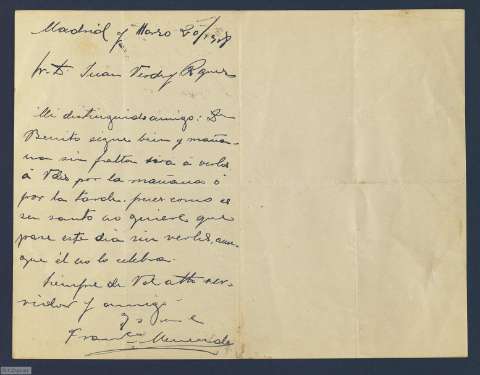 Madrid y Marzo 20/1908
Sr. D. Juan Verdes
Mi distinguido amigo: Dn
Benito sigue bien y maña-
na sin faltta irá á verle
á Vdes por la mañana ó
por la tarde. pues como es
su santo no quiere que
pase este dia sin verles, aun-
que él no lo celebra.
Siempre de Vd. atto ser-
vidor y amigo